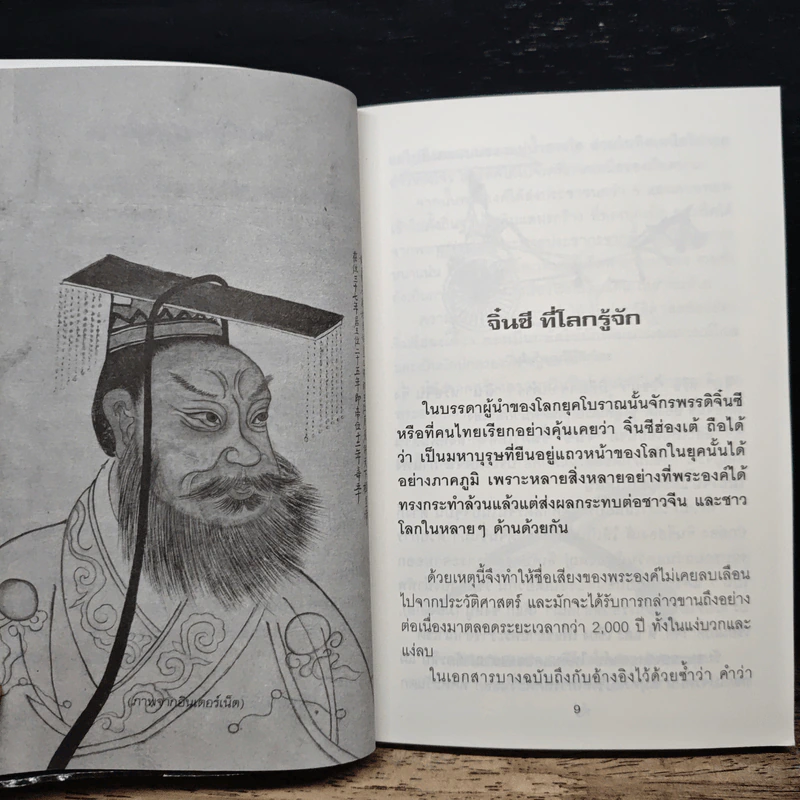 (ภาพจากอินเตอร์เน็ต)
จิ๋นซี ที่โลกรู้จัก
ในบรรดาผู้นำของโลกยุคโบราณนั้นจักรพรรดิจิ๋นซี
หรือที่คนไทยเรียกอย่างคุ้นเคยว่า จิ๋นซีฮ่องเต้ ถือได้
ว่า เป็นมหาบุรุษที่ยืนอยู่แถวหน้าของโลกในยุคนั้นได้
อย่างภาคภูมิ เพราะหลายสิ่งหลายอย่างที่พระองค์ได้
ทรงกระทำล้วนแล้วแต่ส่งผลกระทบต่อชาวจีน และชาว
โลกในหลายๆ ด้านด้วยกัน
ด้วยเหตุนี้จึงทำให้ชื่อเสียงของพระองค์ไม่เคยลบเลือน
ไปจากประวัติศาสตร์ และมักจะได้รับการกล่าวขานถึงอย่าง
ต่อเนื่องมาตลอดระยะเวลากว่า 2,000 ปี ทั้งในแง่บวกและ
แง่ลบ
ในเอกสารบางฉบับถึงกับอ้างอิงไว้ด้วยซ้ำว่า คำว่า
9